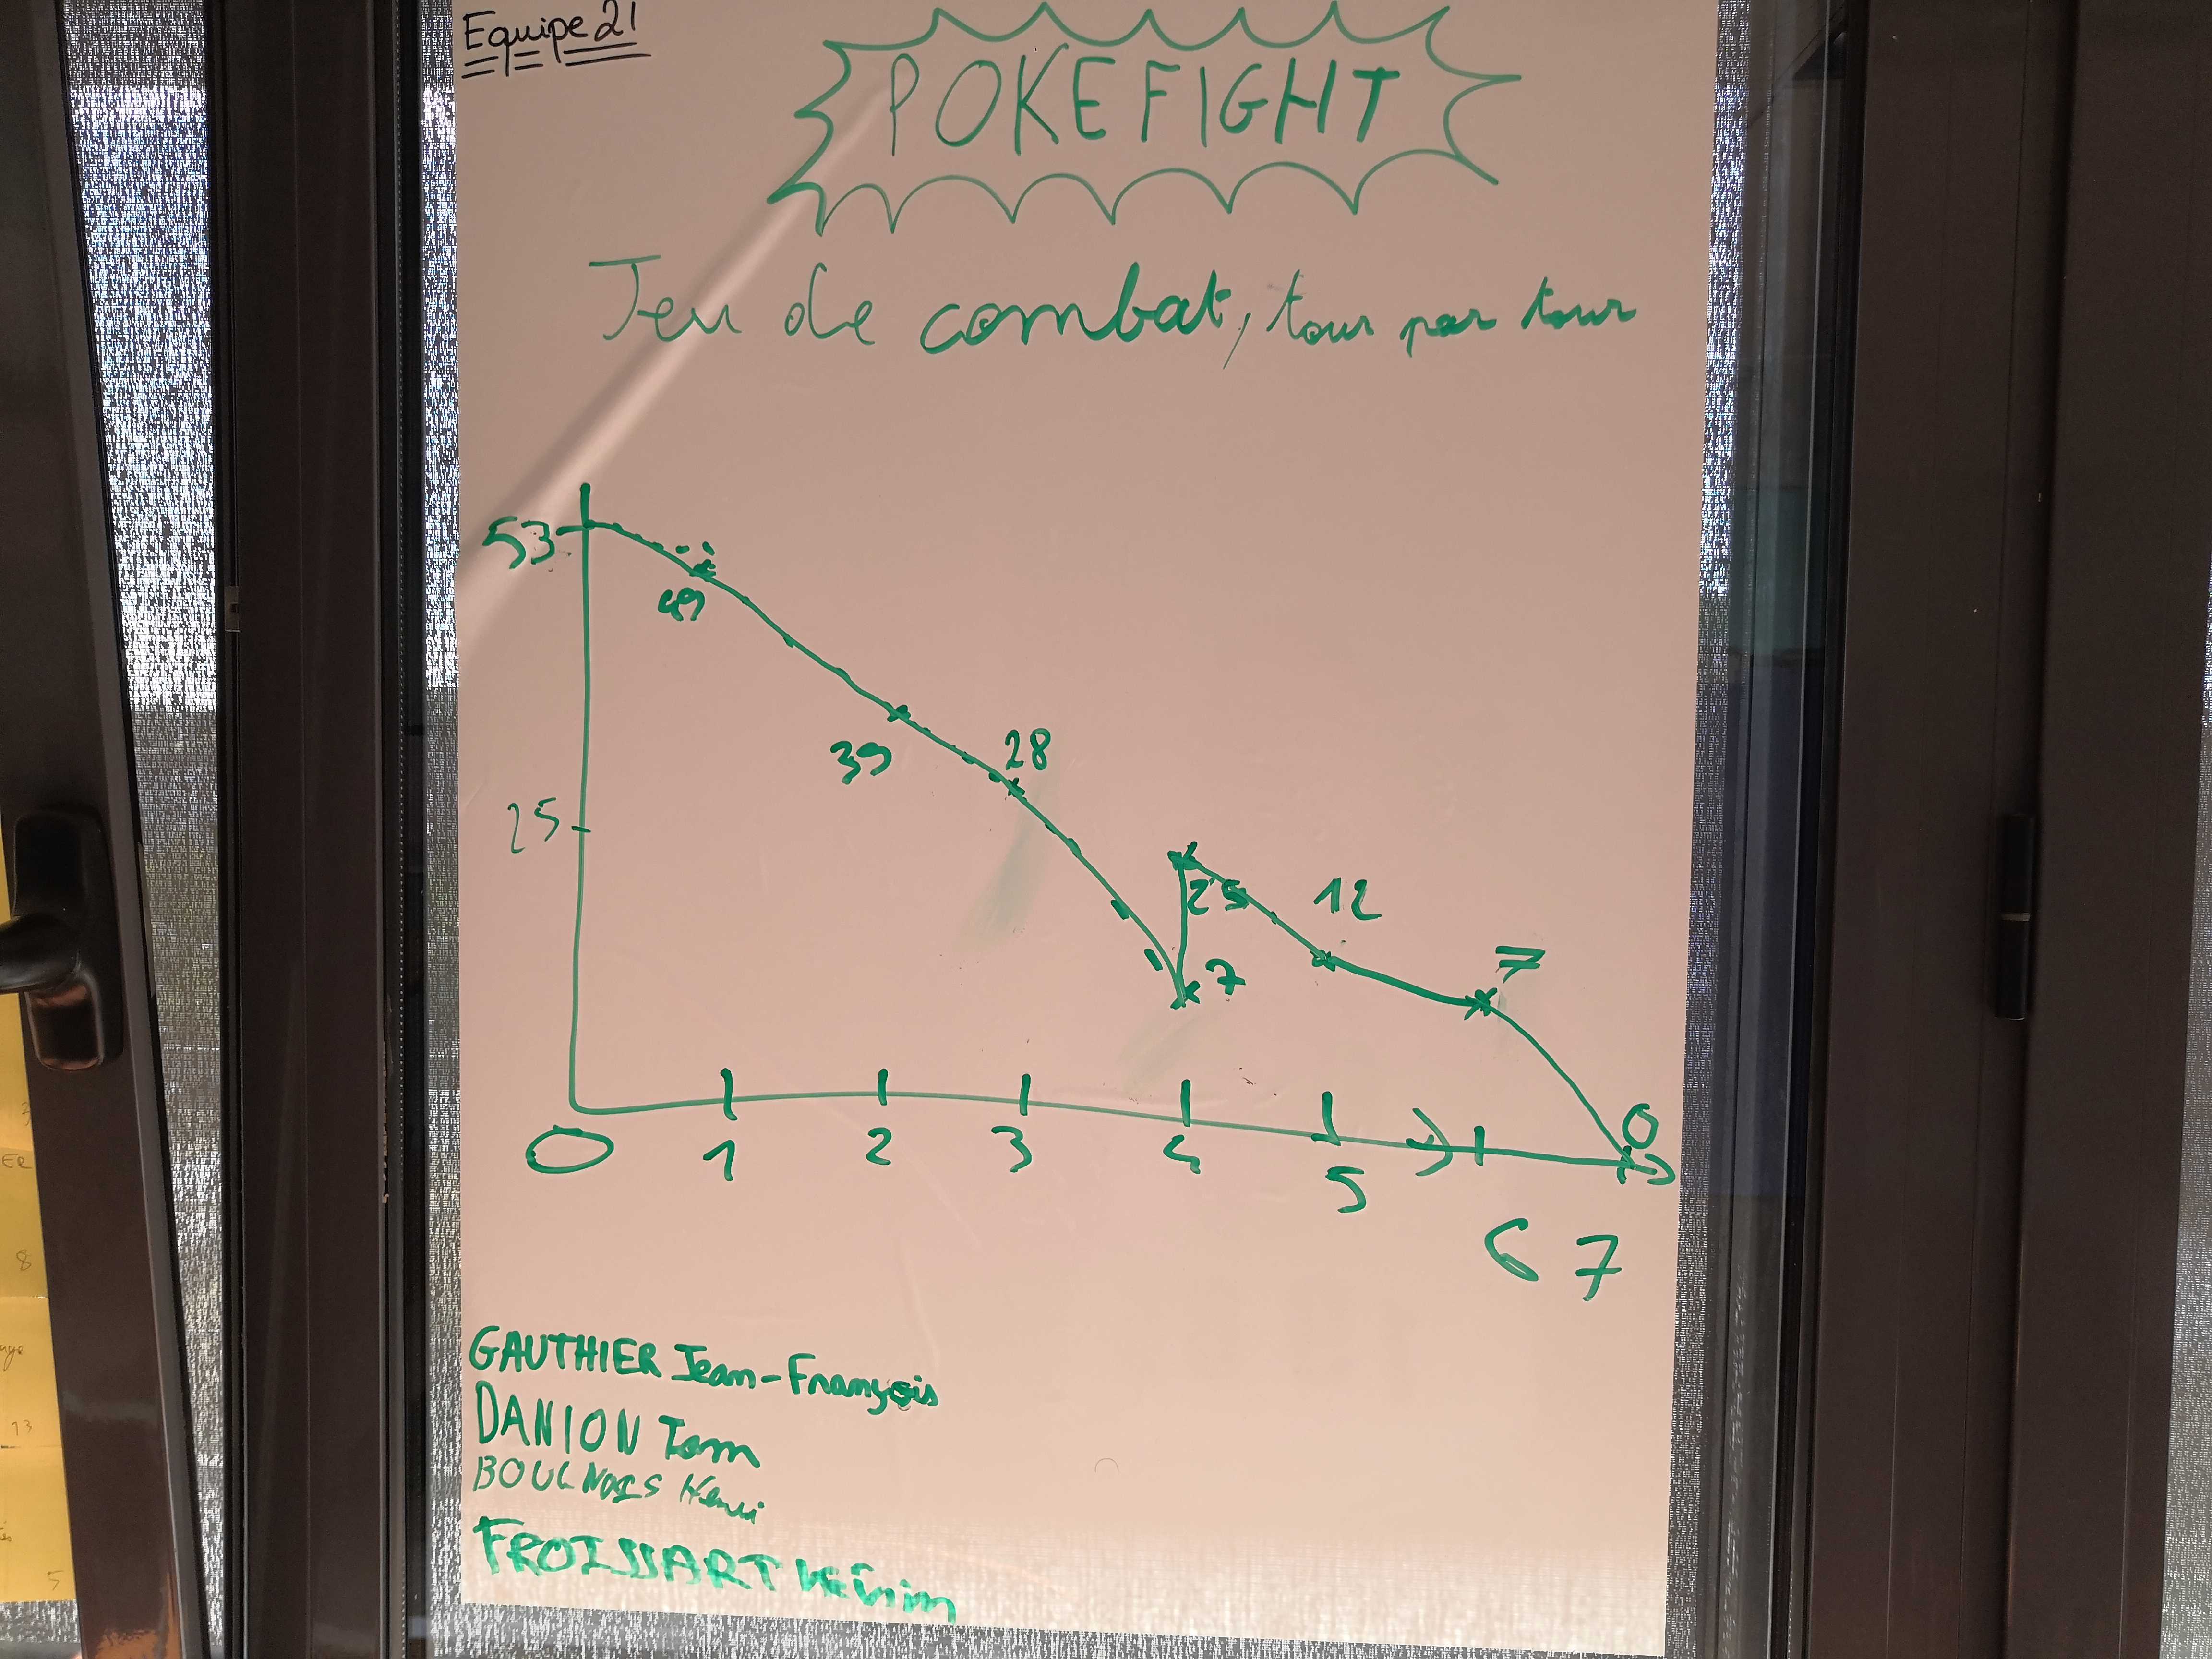 Equipe 21
POKEFIGHT
Jeu de combat, tour par tour
53
49
39
28
25
25
12
7
7
0
0 1 2 3 4 5
6 7
GAUTHIER Jean-François
DANION Tom
BOULNOIS Henri
FROISSART Kévin
ER
8
13
5